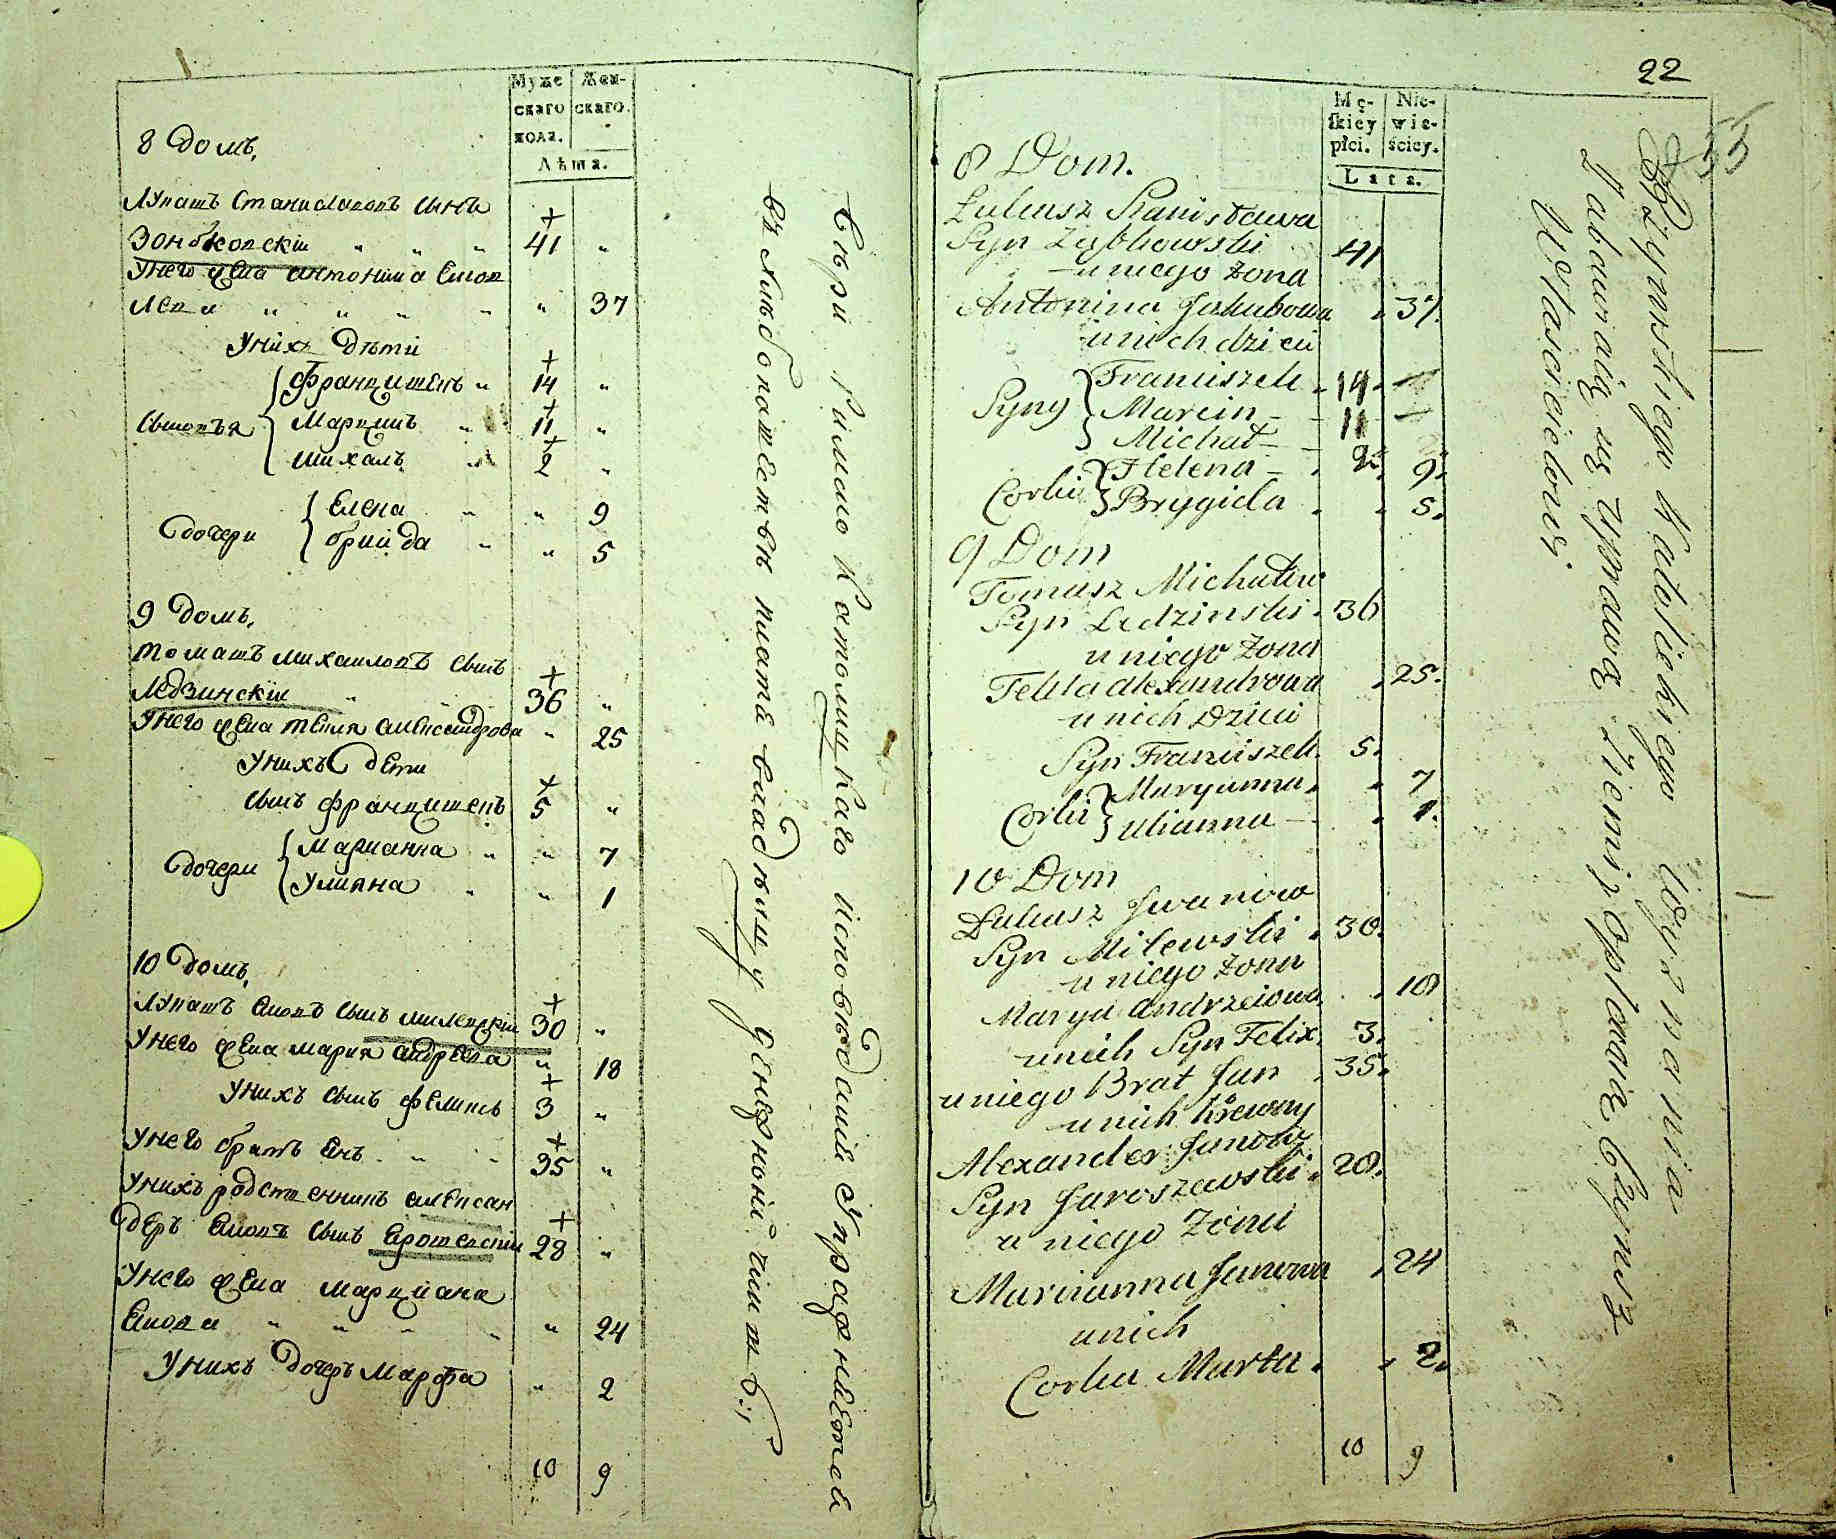 Муже
скаго
пола.
Жен-
скаго.
Лѣта.
8 Домъ,
Лукашъ Станиславовъ сынъ
Зонбковскiи " " " 41 "
У него жена Антонина Яков
лева " " " " " 37
У нихъ дѣти
Сыновья
Францишекъ " 14 "
Марцинъ " 11 "
Михалъ " 2 "
Дочери
Елена " " 9
Бригида " " 5
9 Домъ,
Томашъ Михайловъ сынъ
Ледзинскiи " " 36 "
У него жена Текля Александрова " 25
У нихъ дети
сынъ Францишекъ 5 "
Дочери
Марианна " " 7
Улияна " " 1
10 Домъ,
Лукашъ Яновъ сынъ Милевскiи 30 "
У него жена Мария Андреева " 18
У нихъ сынъ Феликсъ 3 "
У него братъ Янъ " " 35 "
У нихъ родственникъ Алексан
деръ Яновъ сынъ Ярошевскiи 28 "
У него жена Марцианна
Янова " " " " " 24
У нихъ дочеръ Марфа " 2
10 9
Вѣры Римско Католицкаго исповѣданiя Упражняется
въ хлѣбопашествѣ плата владѣльцу денежный чиншъ
22
55
Mę-
skiey
płci.
Nie-
wie-
ściey.
Lata.
8 Dom.
Łukasz Stanisława
Syn Ząbkowski 41
u niego żona
Antonina Jakubowa . 37.
u nich dzieci
Syny
Franciszek . 14. -
Marcin - - 11 -
Michał - - 2.
Corki
Helena - . 9.
Brygida . . 5.
9 Dom
Tomasz Michałów
Syn Ledzinski . 36
u niego żona
Tekla Alexandrowa . 25.
u nich Dzieci
Syn Franciszek. 5.
Corki
Maryanna . . 7
Ulianna - . 1.
10 Dom
Łukasz Iwanow
Syn Milewski . 30.
u niego żona
Marya Andrzeiowa . 18
u nich Syn Felix. 3.
u niego Brat Jan . 35.
u nich Krewny
Alexander Janow
Syn Jaroszewski . 28.
u niego Zona
Maricianna Janowa . 24
u nich
Corka Marta . . 2.
10 9
Rzymskiego Katolickiego Wyznania
Zabawiaią się Uprawą Ziemi, opłacaią Czynsz
Właścicielowi